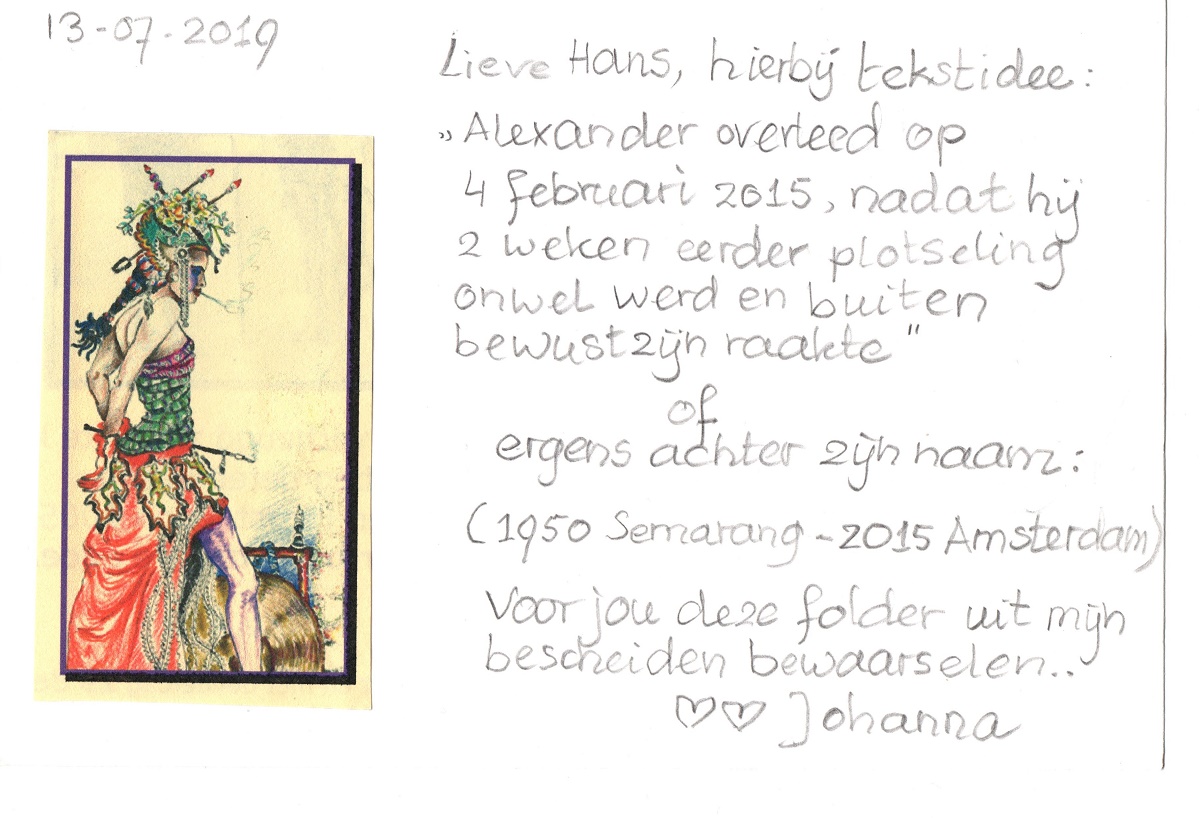 13-07-2019
Lieve Hans, hierbij tekstidee:
„Alexander overleed op
4 februari 2015, nadat hij
2 weken eerder plotseling
onwel werd en buiten
bewustzijn raakte"
of
ergens achter zijn naam:
(1950 Semarang - 2015 Amsterdam)
Voor jou deze folder uit mijn
bescheiden bewaarselen..
♡♡ Johanna